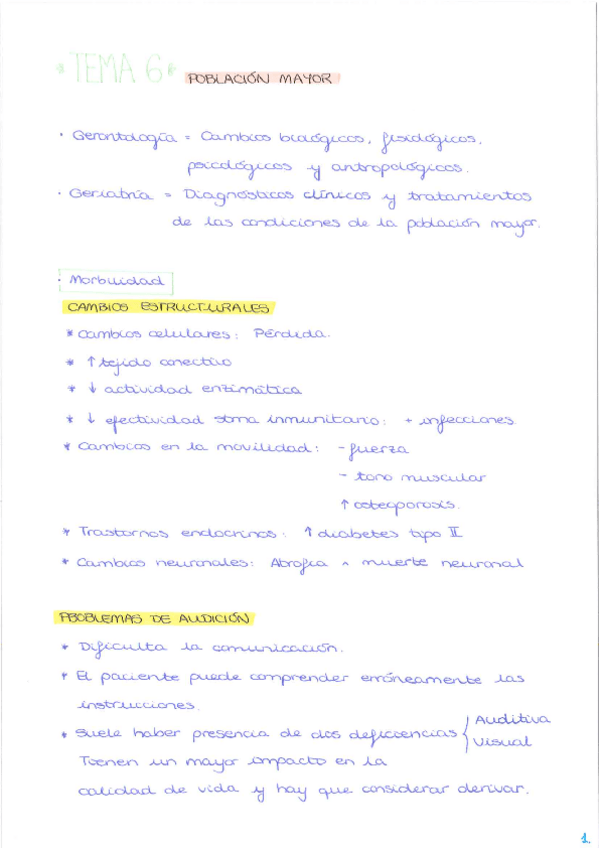 * TEMA 6* POBLACIÓN MAYOR
· Gerontología = Cambios biológicos, fisiológicos,
psicológicos y antropológicos.
· Geriatría = Diagnósticos clínicos y tratamientos
de las condiciones de la población mayor.
· Morbuidad
CAMBIOS ESTRUCTURALES
* Cambios celulares: Pérdida.
* ↑ tejido conectivo
* ↓ actividad enzimática
* ↓ efectividad stma inmunitario: + infecciones
* Cambios en la movilidad: - fuerza
- tono muscular
↑ osteoporosis.
* Trastornos endocrinos: ↑ diabetes tipo II
* Cambios neuronales: Atrofia ^ muerte neuronal
PROBLEMAS DE AUDICIÓN
* Dificulta la comunicación.
* El paciente puede comprender erróneamente las
instrucciones.
* Suele haber presencia de dos deficiencias { Auditiva
Visual
Tienen un mayor impacto en la
calidad de vida y hay que considerar derivar.
1.